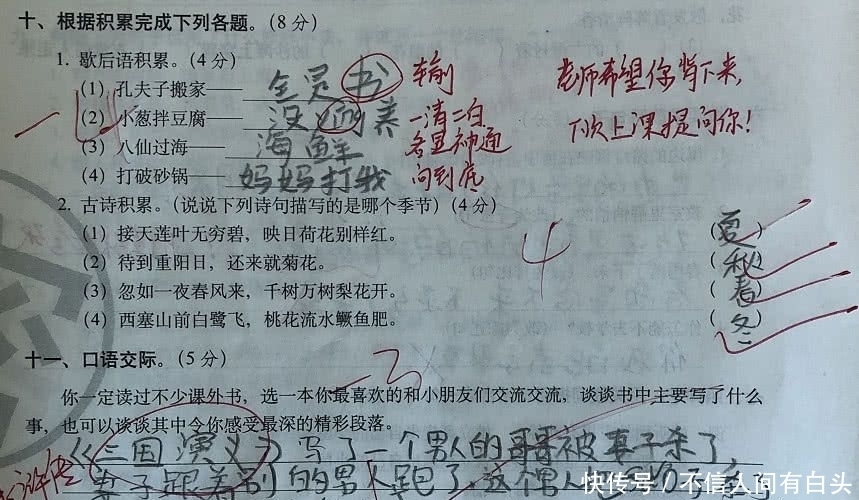 十、根据积累完成下列各题。(8 分)
1. 歇后语积累。(4 分)
(1) 孔夫子搬家—— 全是书 输
(2) 小葱拌豆腐—— 没 养 一清二白
(3) 八仙过海—— 海鲜 各显神通
(4) 打破砂锅—— 妈妈打我 问到底
老师希望你背下来,
下次上课提问你!
-4
2. 古诗积累。(说说下列诗句描写的是哪个季节) (4 分)
(1) 接天莲叶无穷碧,映日荷花别样红。 (夏)
(2) 待到重阳日,还来就菊花。 (秋)
(3) 忽如一夜春风来,千树万树梨花开。 (春)
(4) 西塞山前白鹭飞,桃花流水鳜鱼肥。 (冬)
4
十一、口语交际。(5 分) -3
你一定读过不少课外书,选一本你最喜欢的和小朋友们交流交流,谈谈书中主要写了什么
事,也可以谈谈其中令你感受最深的精彩段落。
《三国演义》写了一个男人的哥哥被妻子杀了,
妻子跟着别的男人跑了,这个男人
快传号 / 不信人间有白头